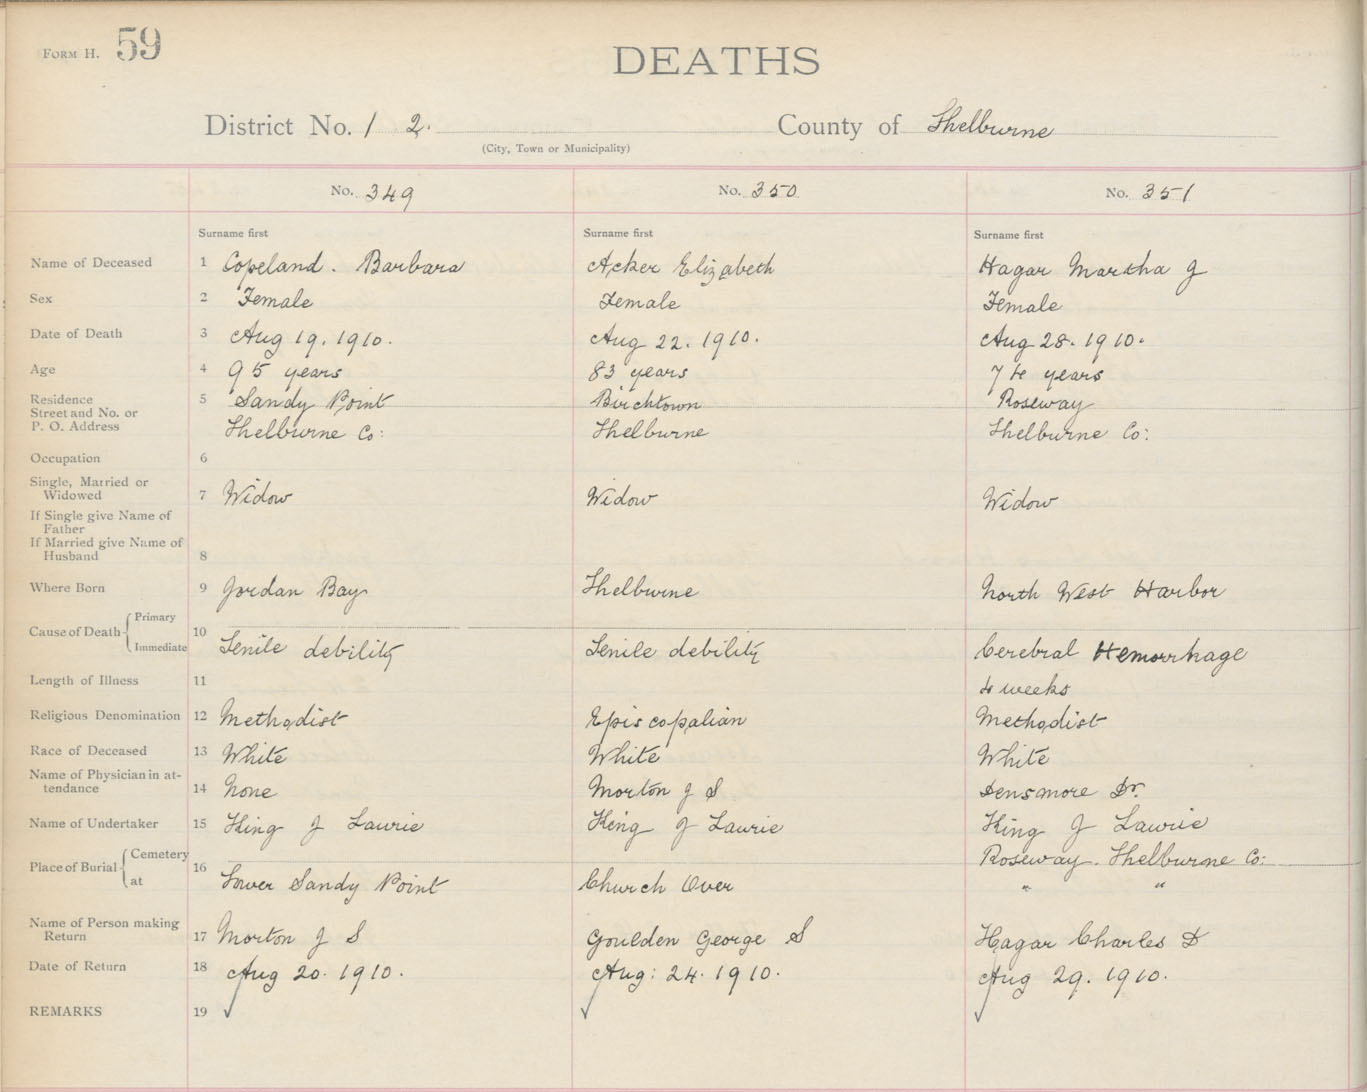 FORM H. 59
DEATHS
District No. 1 2. County of Shelburne
(City, Town or Municipality)
No. 349 No. 350 No. 351
Surname first Surname first Surname first
Name of Deceased 1 Copeland. Barbara Acker Elizabeth Hagar Martha J
Sex 2 Female Female Female
Date of Death 3 Aug 19. 1910. Aug 22. 1910. Aug 28. 1910.
Age 4 95 years 83 years 74 years
Residence 5 Sandy Point Birchtown Roseway
Street and No. or
P. O. Address Shelburne Co: Shelburne Shelburne Co:
Occupation 6
Single, Married or
Widowed 7 Widow Widow Widow
If Single give Name of
Father
If Married give Name of
Husband 8
Where Born 9 Jordan Bay Shelburne North West Harbor
Primary
Cause of Death 10
Immediate Senile debility Senile debility Cerebral Hemorrhage
Length of Illness 11 4 weeks
Religious Denomination 12 Methodist Episcopalian Methodist
Race of Deceased 13 White White White
Name of Physician in at-
tendance 14 None Morton J S Densmore Dr.
Name of Undertaker 15 King J Lawrie King J Laurie King J Lawrie
Cemetery Roseway. Shelburne Co:
Place of Burial 16
at Lower Sandy Point Church Over " "
Name of Person making
Return 17 Morton J S Goulden George S Hagar Charles D
Date of Return 18 Aug 20. 1910. Aug: 24. 1910. Aug 29. 1910.
REMARKS 19 ✓ ✓ ✓